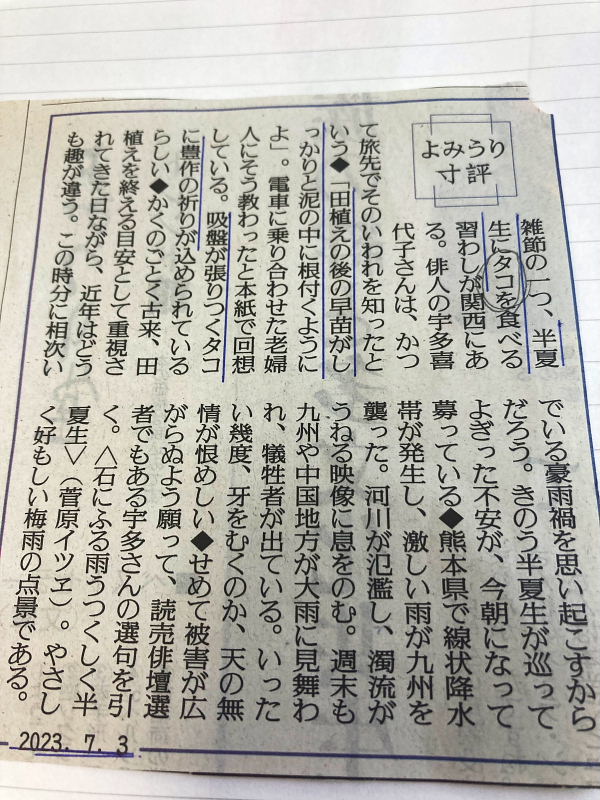 よみうり
寸評
雑節の一つ、半夏
生にタコを食べる
習わしが関西にあ
る。俳人の宇多喜
代子さんは、かつ
て旅先でそのいわれを知ったと
いう◆「田植えの後の早苗がし
っかりと泥の中に根付くように
よ」。電車に乗り合わせた老婦
人にそう教わったと本紙で回想
している。吸盤が張りつくタコ
に豊作の祈りが込められている
らしい◆かくのごとく古来、田
植えを終える目安として重視さ
れてきた日ながら、近年はどう
も趣が違う。この時分に相次い
でいる豪雨禍を思い起こすから
だろう。きのう半夏生が巡って
よぎった不安が、今朝になって
募っている◆熊本県で線状降水
帯が発生し、激しい雨が九州を
襲った。河川が氾濫し、濁流が
うねる映像に息をのむ。週末も
九州や中国地方が大雨に見舞わ
れ、犠牲者が出ている。いった
い幾度、牙をむくのか、天の無
情が恨めしい◆せめて被害が広
がらぬよう願って、読売俳壇選
者でもある宇多さんの選句を引
く。△石にふる雨うつくしく半
夏生▽（菅原イツヱ）。やさし
く好もしい梅雨の点景である。
2023. 7. 3